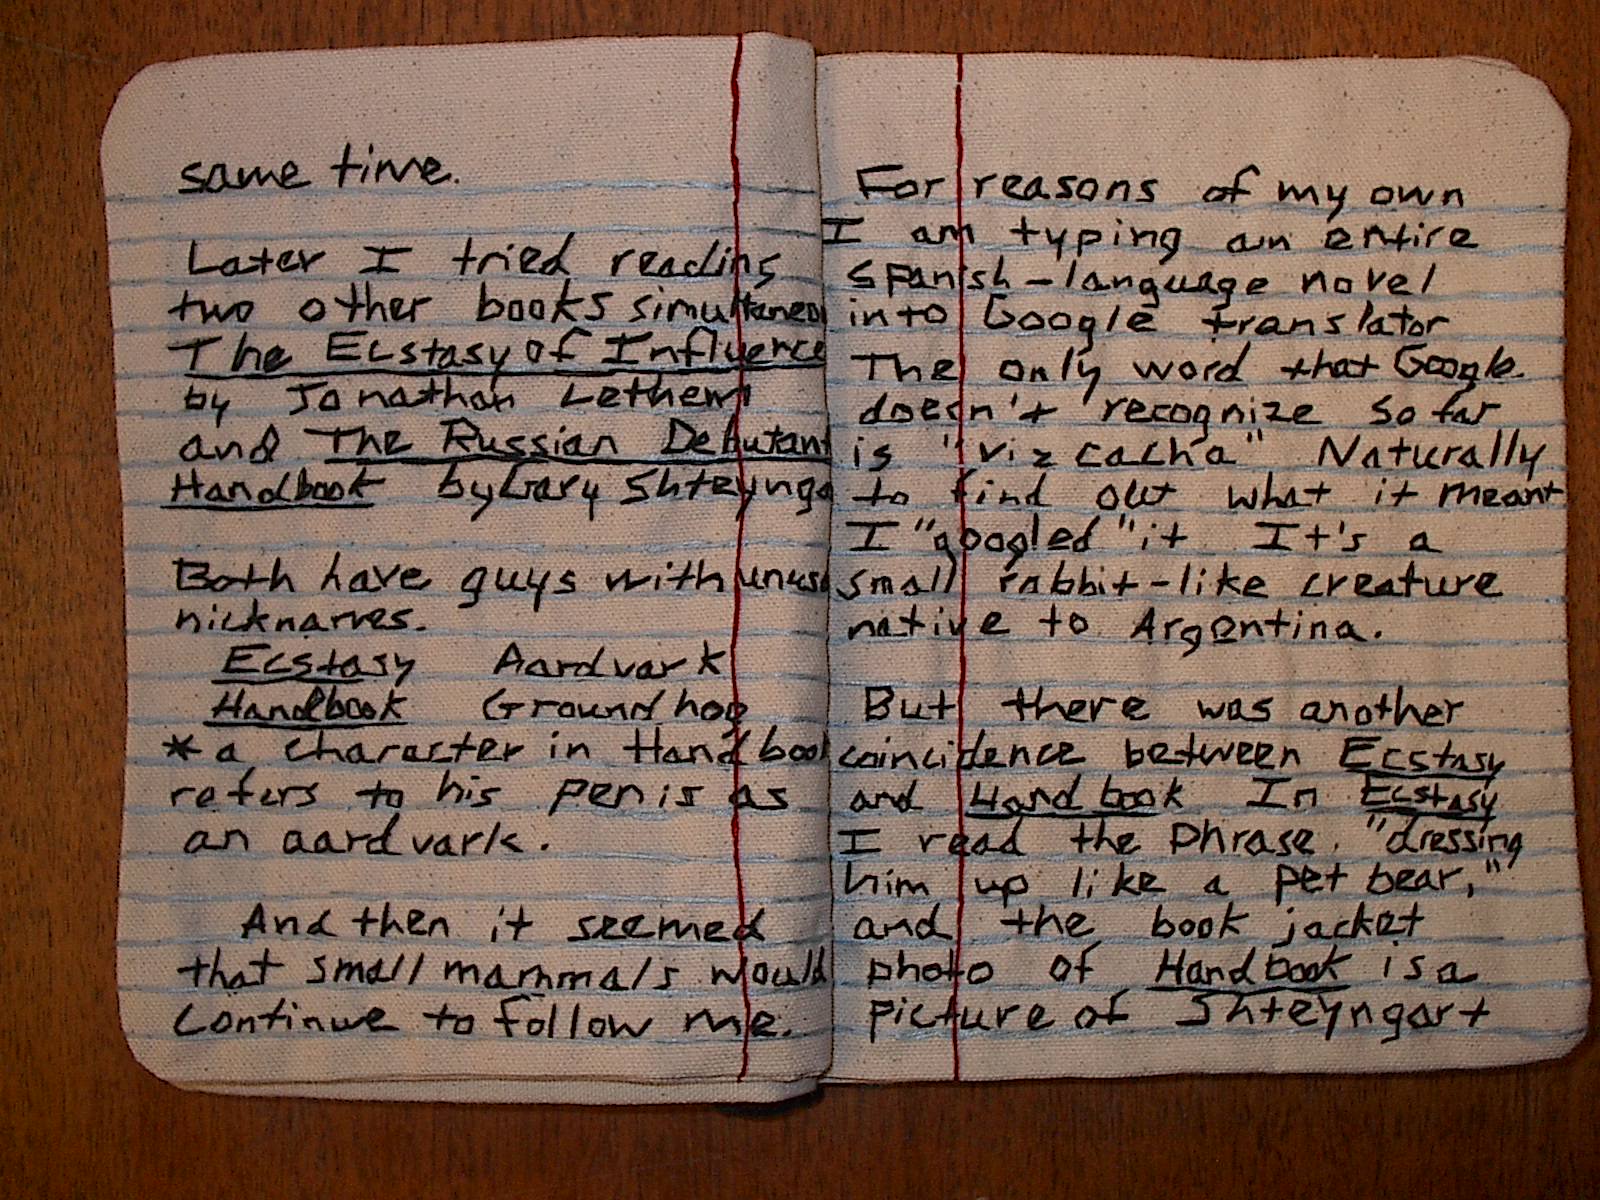 same time.
Later I tried reading
two other books simultaneo
The Ecstasy of Influence
by Jonathan Lethem
and The Russian Debutant
Handbook by Gary Shteynga
Both have guys with unus
nicknames.
Ecstasy Aardvark
Handbook Groundhog
* a character in Handbook
refers to his penis as
an aardvark.
And then it seemed
that small mammals would
continue to follow me.
For reasons of my own
I am typing an entire
Spanish-language novel
into Google translator
The only word that Google
doesn't recognize so far
is "vizcacha" Naturally
to find out what it meant
I "googled" it It's a
small rabbit-like creature
native to Argentina.
But there was another
coincidence between Ecstasy
and Handbook In Ecstasy
I read the phrase, "dressing
him up like a pet bear,"
and the book jacket
photo of Handbook is a
picture of Shteyngart